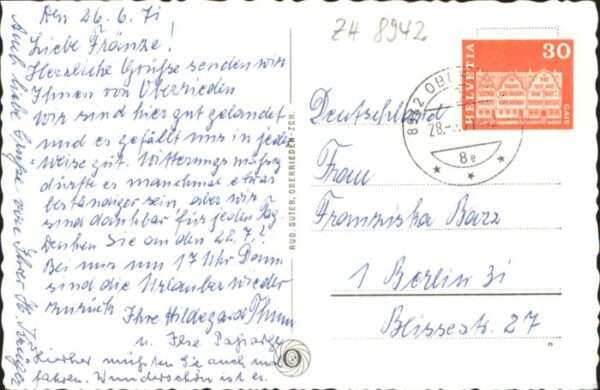 Den 26.6.71
Liebe Fränze!
Herzliche Grüße senden wir
Ihnen von Oberrieden
Wir sind hier gut gelandet
und es gefällt uns in jeder
Weise gut. Witterungsmäßig
dürfte es manchmal etwas
beständiger sein, aber wir
sind dankbar für jeden Tag
Denken Sie an den 22.7.?
Bei mir um 17 Uhr Dann
sind die Urlauber wieder
zurück
Ihre Hildegard Thum
u. Ilse
Hierher müßten Sie auch mal
fahren. Wunderschön ist es.
Auch liebe Grüße von Ihrer H.
RUD. SUTER, OBERRIEDEN-ZCH.
ZH 8942
HELVETIA
30
GAIS
8942
28.
8e
Deutschland
Frau
Franziska Barz
1 Berlin 31
Blissestr. 27